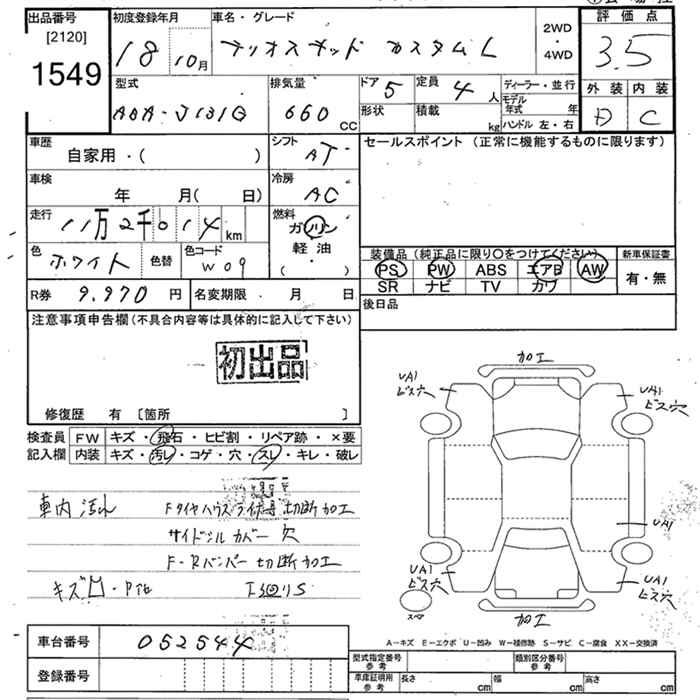 出品番号
[2120]
1549
初度登録年月
18 10月
車名・グレード
テリオスキッド カスタムL
2WD
・
4WD
評価点
3.5
型式
ABA-J131G
排気量
660 CC
ドア 5
形状
定員 4 人
積載 kg
ディーラー・並行
モデル年式 年
ハンドル 左・右
外装 内装
D C
車歴
自家用・( )
シフト
AT
セールスポイント (正常に機能するものに限ります)
車検
年 月( 日)
冷房
AC
走行
11万2千014 km
燃料
ガソリン
軽油
・
( )
色
ホワイト
色替
色コード
W09
装備品(純正品に限り〇をつけてください)
新車保証書
PS PW ABS エアB AW
SR ナビ TV カワ
有・無
R券 9.970 円
名変期限 ・ 月 日
後日品
注意事項申告欄(不具合内容等は具体的に記入して下さい)
初出品
修復歴 有 [箇所 ]
検査員
記入欄
FW キズ・飛石・ヒビ割・リペア跡・×要
内装 キズ・汚レ・コゲ・穴・スレ・キレ・破レ
車内汚れ
Fタイヤハウス ライナー 切断加工
サイドシルカバー 穴
F・Rバンパー切断加工
キズ凹・Pイセ
加工
UA1
ビス穴
UA1
ビス穴
UA1
UA1
ビス穴
UA1
ビス穴
スペア
加工
A−キズ E−エクボ U−凹み W−補修跡 S−サビ C−腐食 XX−交換済
車台番号 052544
登録番号
型式指定番号
参考
類別区分番号
参考
車庫証明用
参考
長さ cm
幅 cm
高さ cm